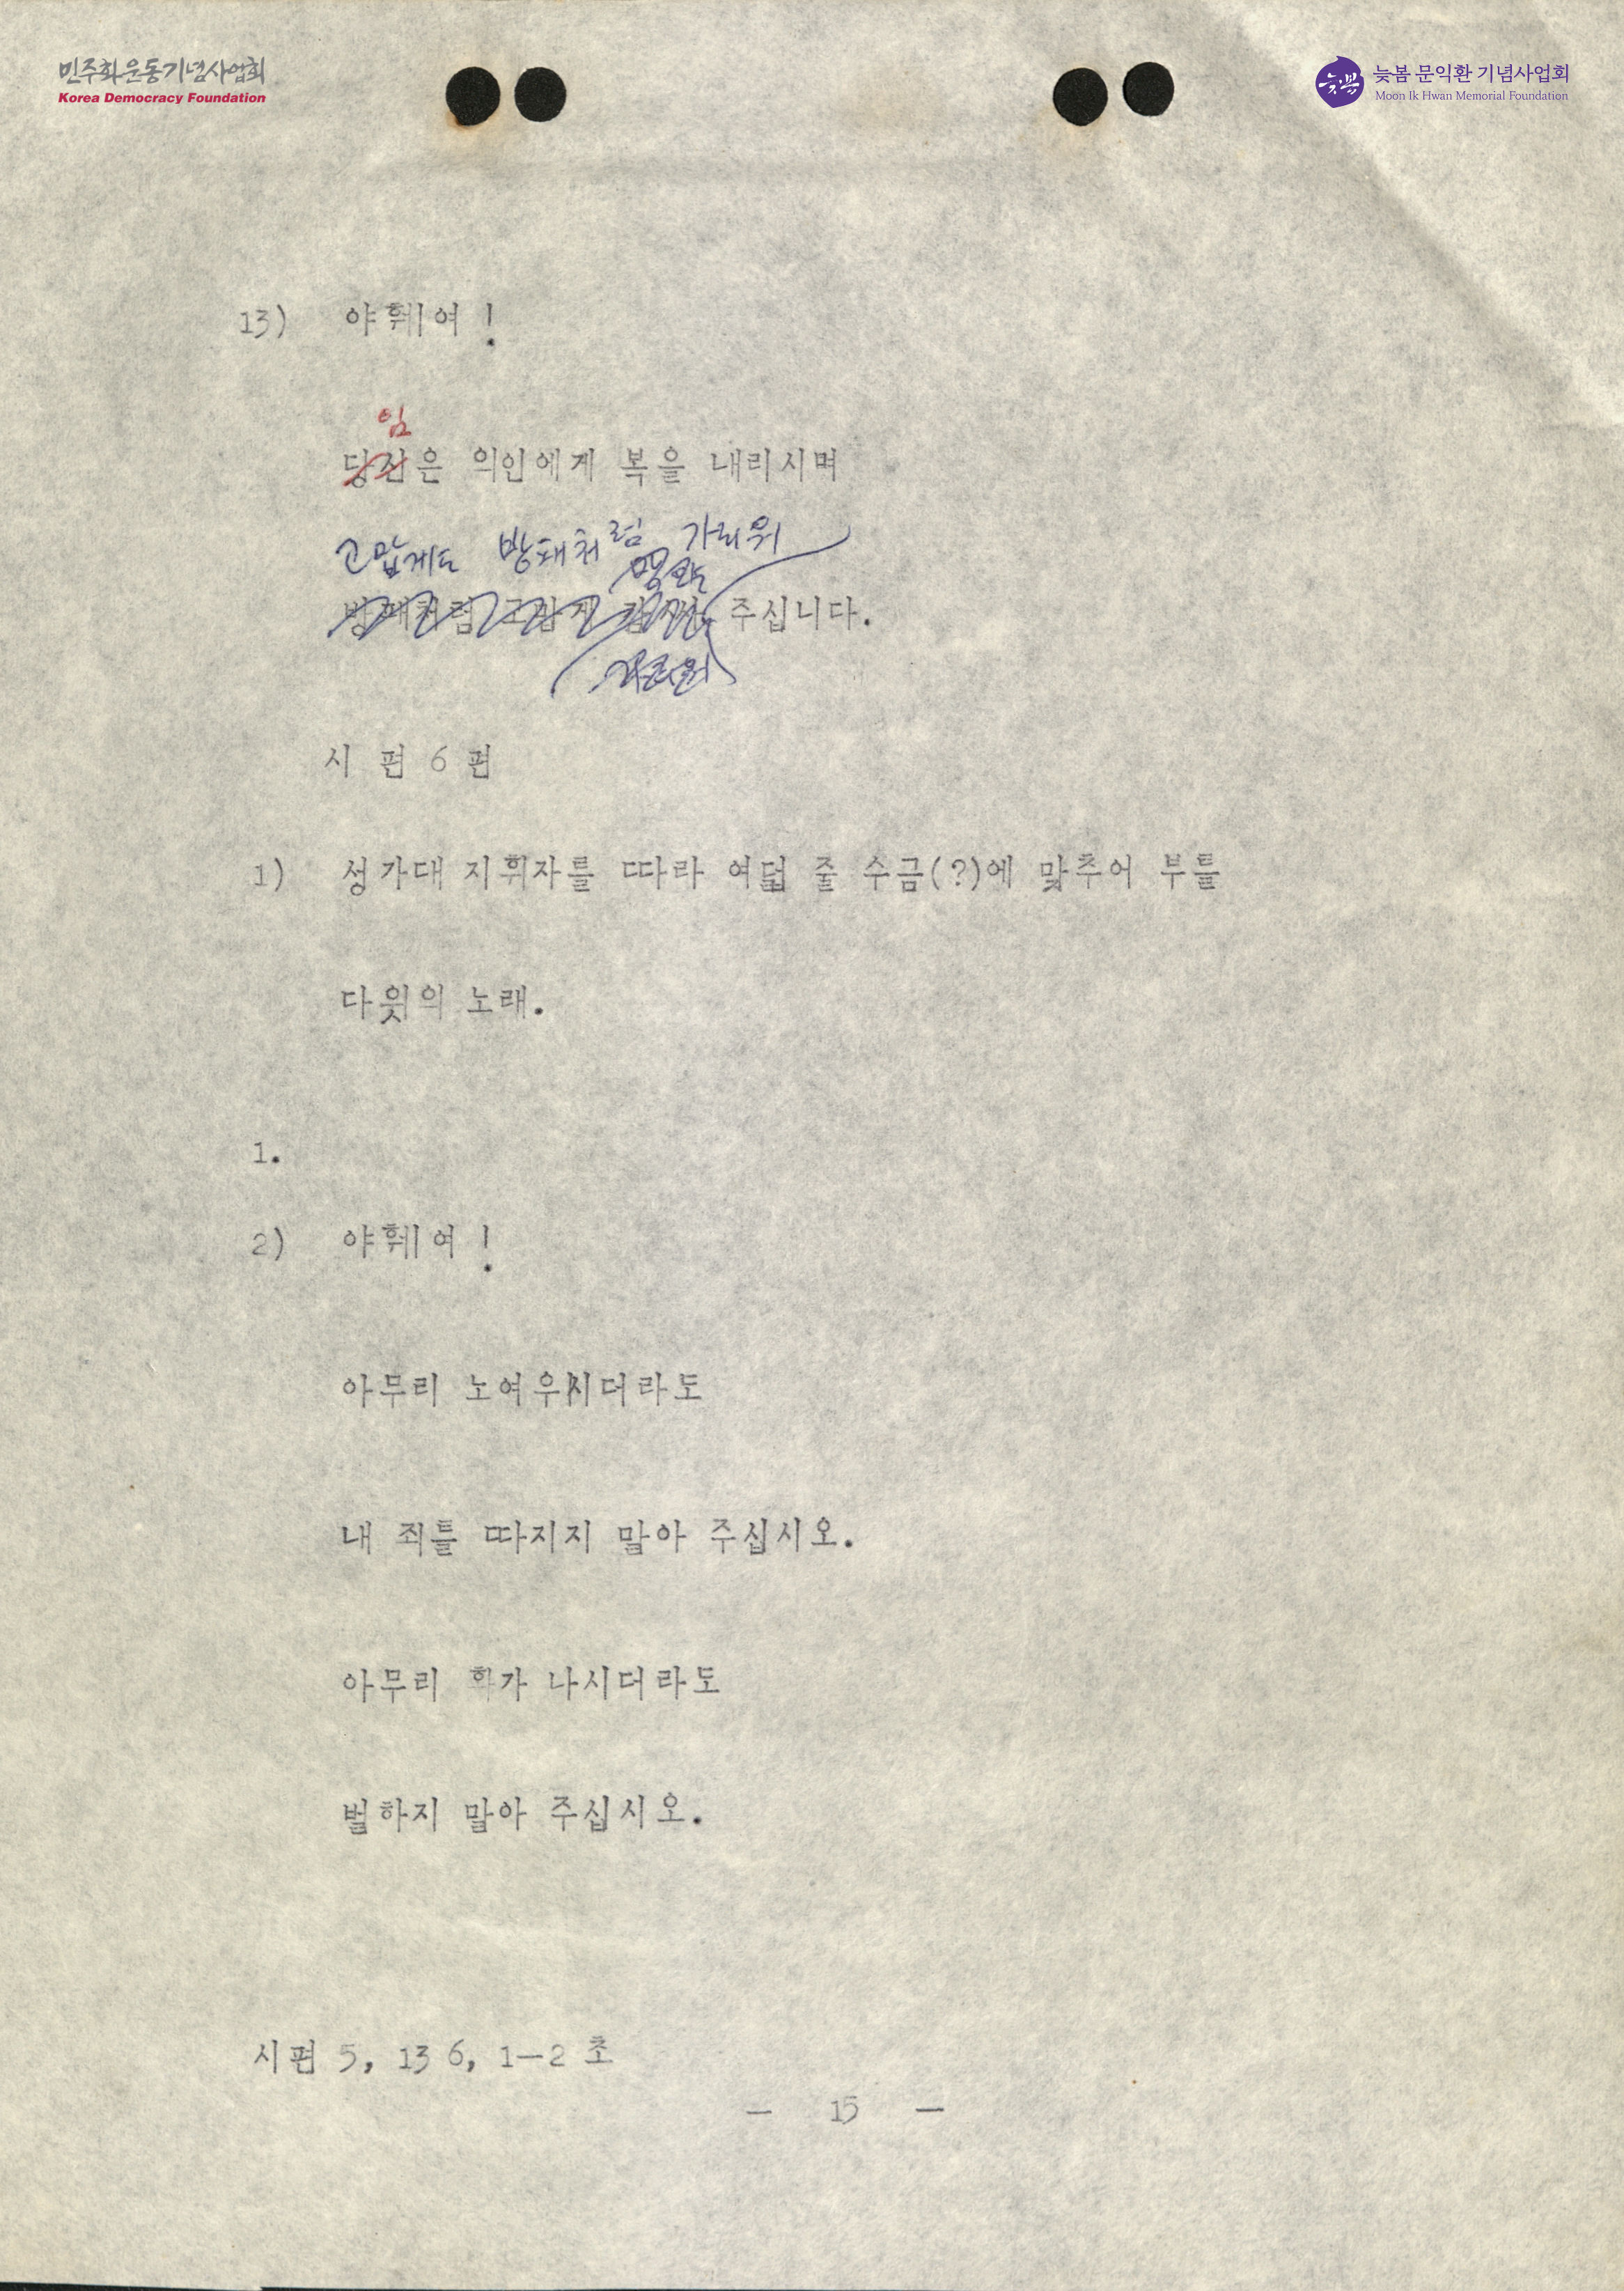 민주화운동기념사업회
Korea Democracy Foundation
늦봄
늦봄 문익환 기념사업회
Moon Ik Hwan Memorial Foundation
13) 야훼여!
임
당신은 의인에게 복을 내리시며
고맙게도 방패처럼 가리워
방패처럼 고맙게 주십니다.
시 편 6 편
1) 성가대 지휘자를 따라 여덟 줄 수금(?)에 맞추어 부를
다윗의 노래.
1.
2) 야훼여!
아무리 노여우시더라도
내 죄를 따지지 말아 주십시오.
아무리 화가 나시더라도
벌하지 말아 주십시오.
시편 5, 13 6, 1-2 초
- 15 -